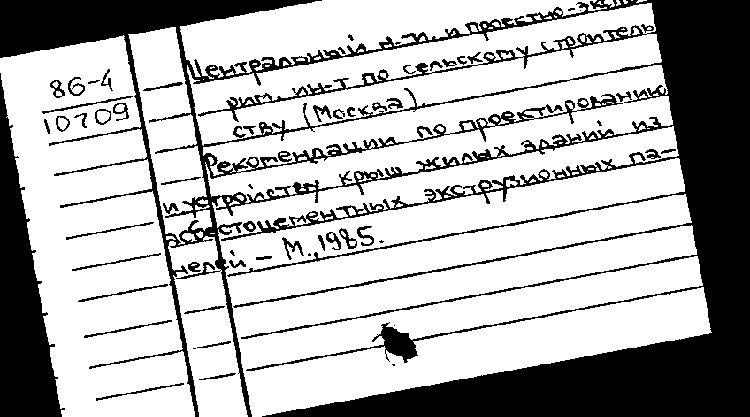 86-4
10709
Центральный н.-и. и проектно-экспе-
рим. ин-т по сельскому строитель
ству (Москва).
Рекомендации по проектированию
и устройству крыш жилых зданий из
асбестоцементных экструзионных па-
нелей. - М., 1985.